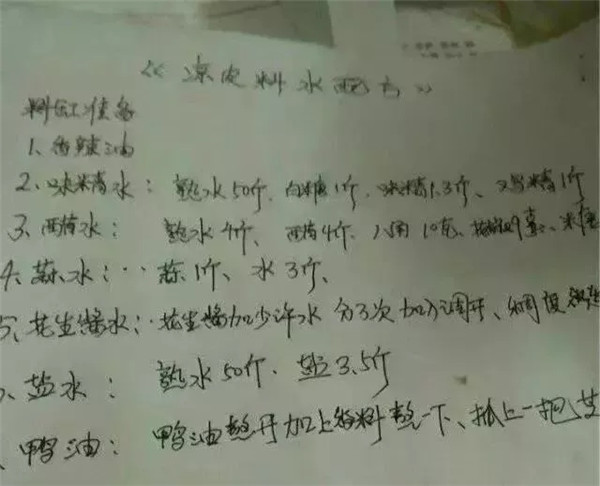 《凉皮料水配方》
料缸准备
1、香辣油
2、味精水：熟水50斤、白糖1斤、味精1.3斤、鸡精1斤
3、西红水：熟水4斤、西红4斤、八角10克
4、蒜水：蒜1斤、水3斤、
5、花生酱水：花生酱加少许水 分3次加入调开、稠度
、盐水：熟水50斤、盐3.5斤
、鸭油：鸭油熬开加上香料熬一下、抓上一把